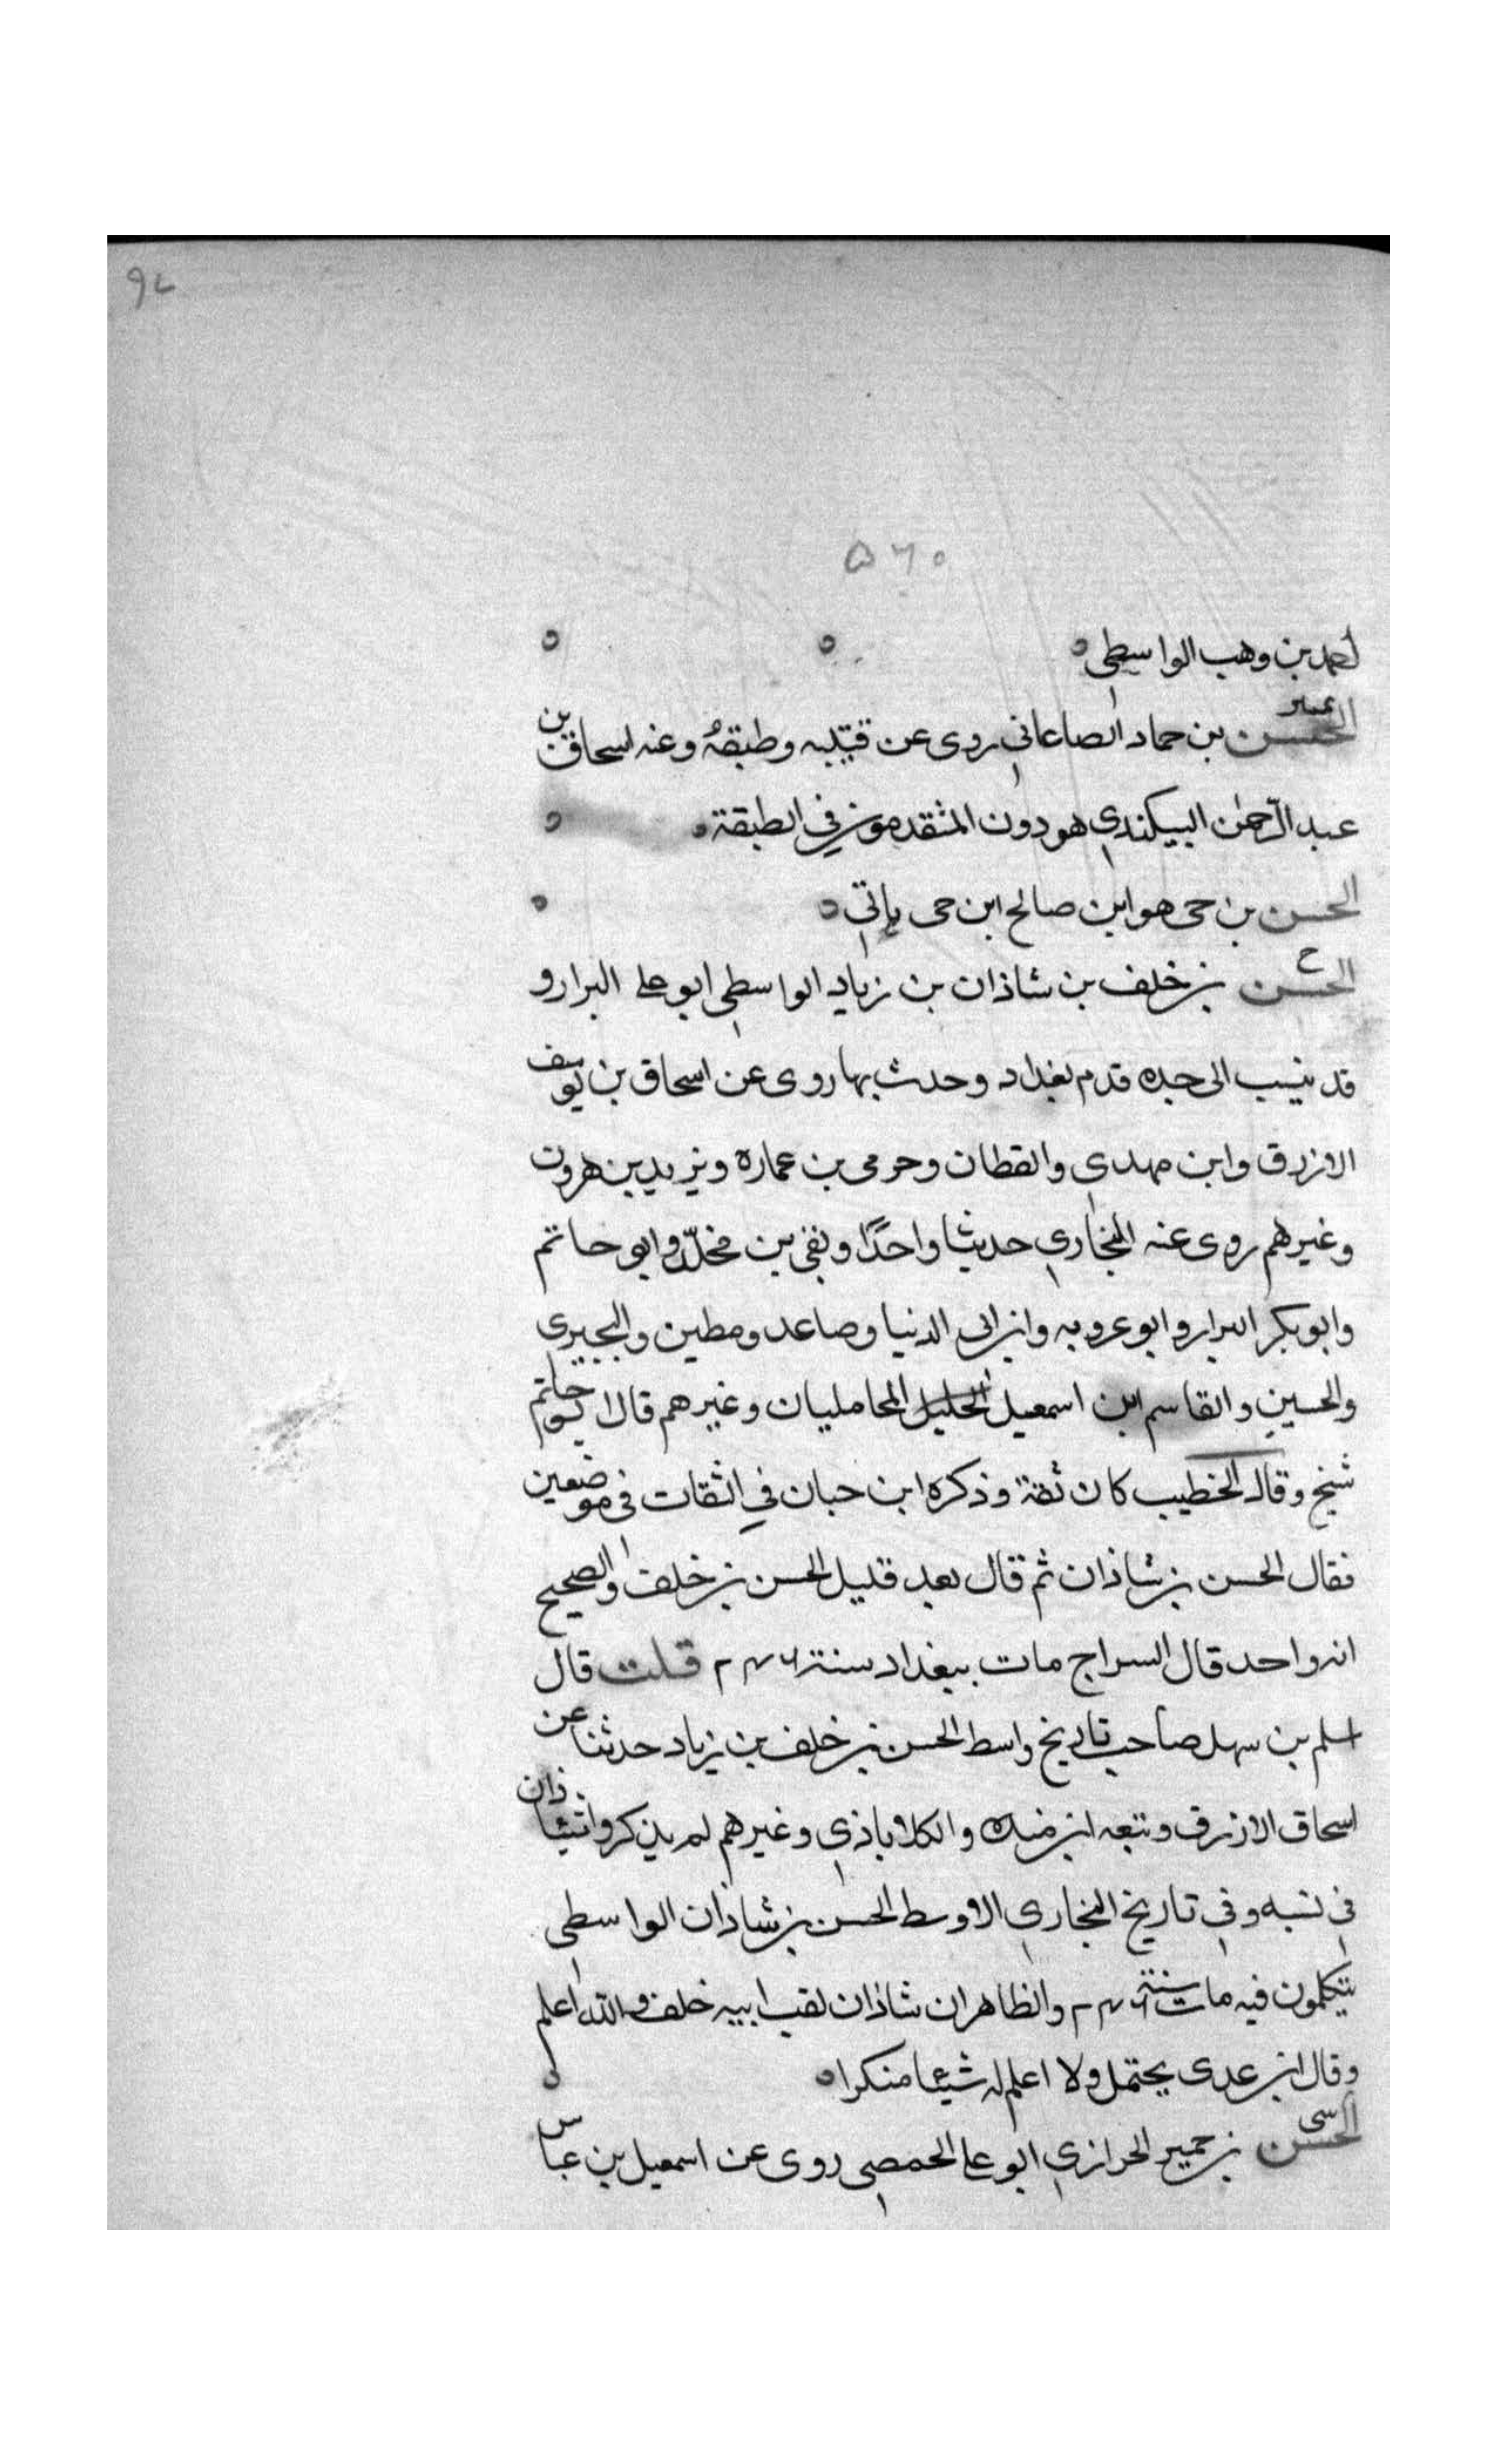 ٩٢
٥٦٠
احمد بن وهب الواسطي ه ه ه
تمييز
الحسن بن حماد الصاغاني روى عن قتيبه وطبقة وعنه اسحاق بن
عبد الرحمٰن البيكندي هو دون المتقدمين في الطبقة ه ه
الحسن بن حى هو ابن صالح ابن حى ياتي ه ه
خ
الحسن بن خلف بن شاذان بن زياد الواسطي ابو على البزار و
قد ينسب الى جده قدم بغداد وحدث بها روى عن اسحاق بن يوسف
الازرق وابن مهدي والقطان وحرمى بن عمارة ويزيد بن هرون
وغيرهم روى عنه البخاري حديثا واحدًا وبقى بن مخلد وابو حاتم
وابو بكر البزار وابو عروبه وابن ابى الدنيا وصاعد ومطين والبجيرى
والحسين والقاسم ابن اسمعيل الخليل المحامليان وغيرهم قال ابو حاتم
شيخ وقال الخطيب كان ثقة وذكره ابن حبان في الثقات فى موضعين
فقال الحسن بن شاذان ثم قال بعد قليل الحسن بن خلف والصحيح
انه واحد قال السراج مات ببغداد سنة ٢٤٦ قلت قال
اسلم بن سهل صاحب تاريخ واسط الحسن بن خلف بن زياد حدثنا عن
اسحاق الازرق وتبعه ابن منده والكلاباذي وغيرهم لم يذكروا شاذان
في نسبه وفي تاريخ البخاري الاوسط الحسن بن شاذان الواسطي
يتكلمون فيه مات سنة ٢٤٦ والظاهر ان شاذان لقب ابيه خلف والله اعلم
وقال ابن عدى يحتمل ولا اعلم له شيئا منكرا ه ه
سى
الحسن بن حمير الحرازي ابو على الحمصي روى عن اسمعيل بن عباس